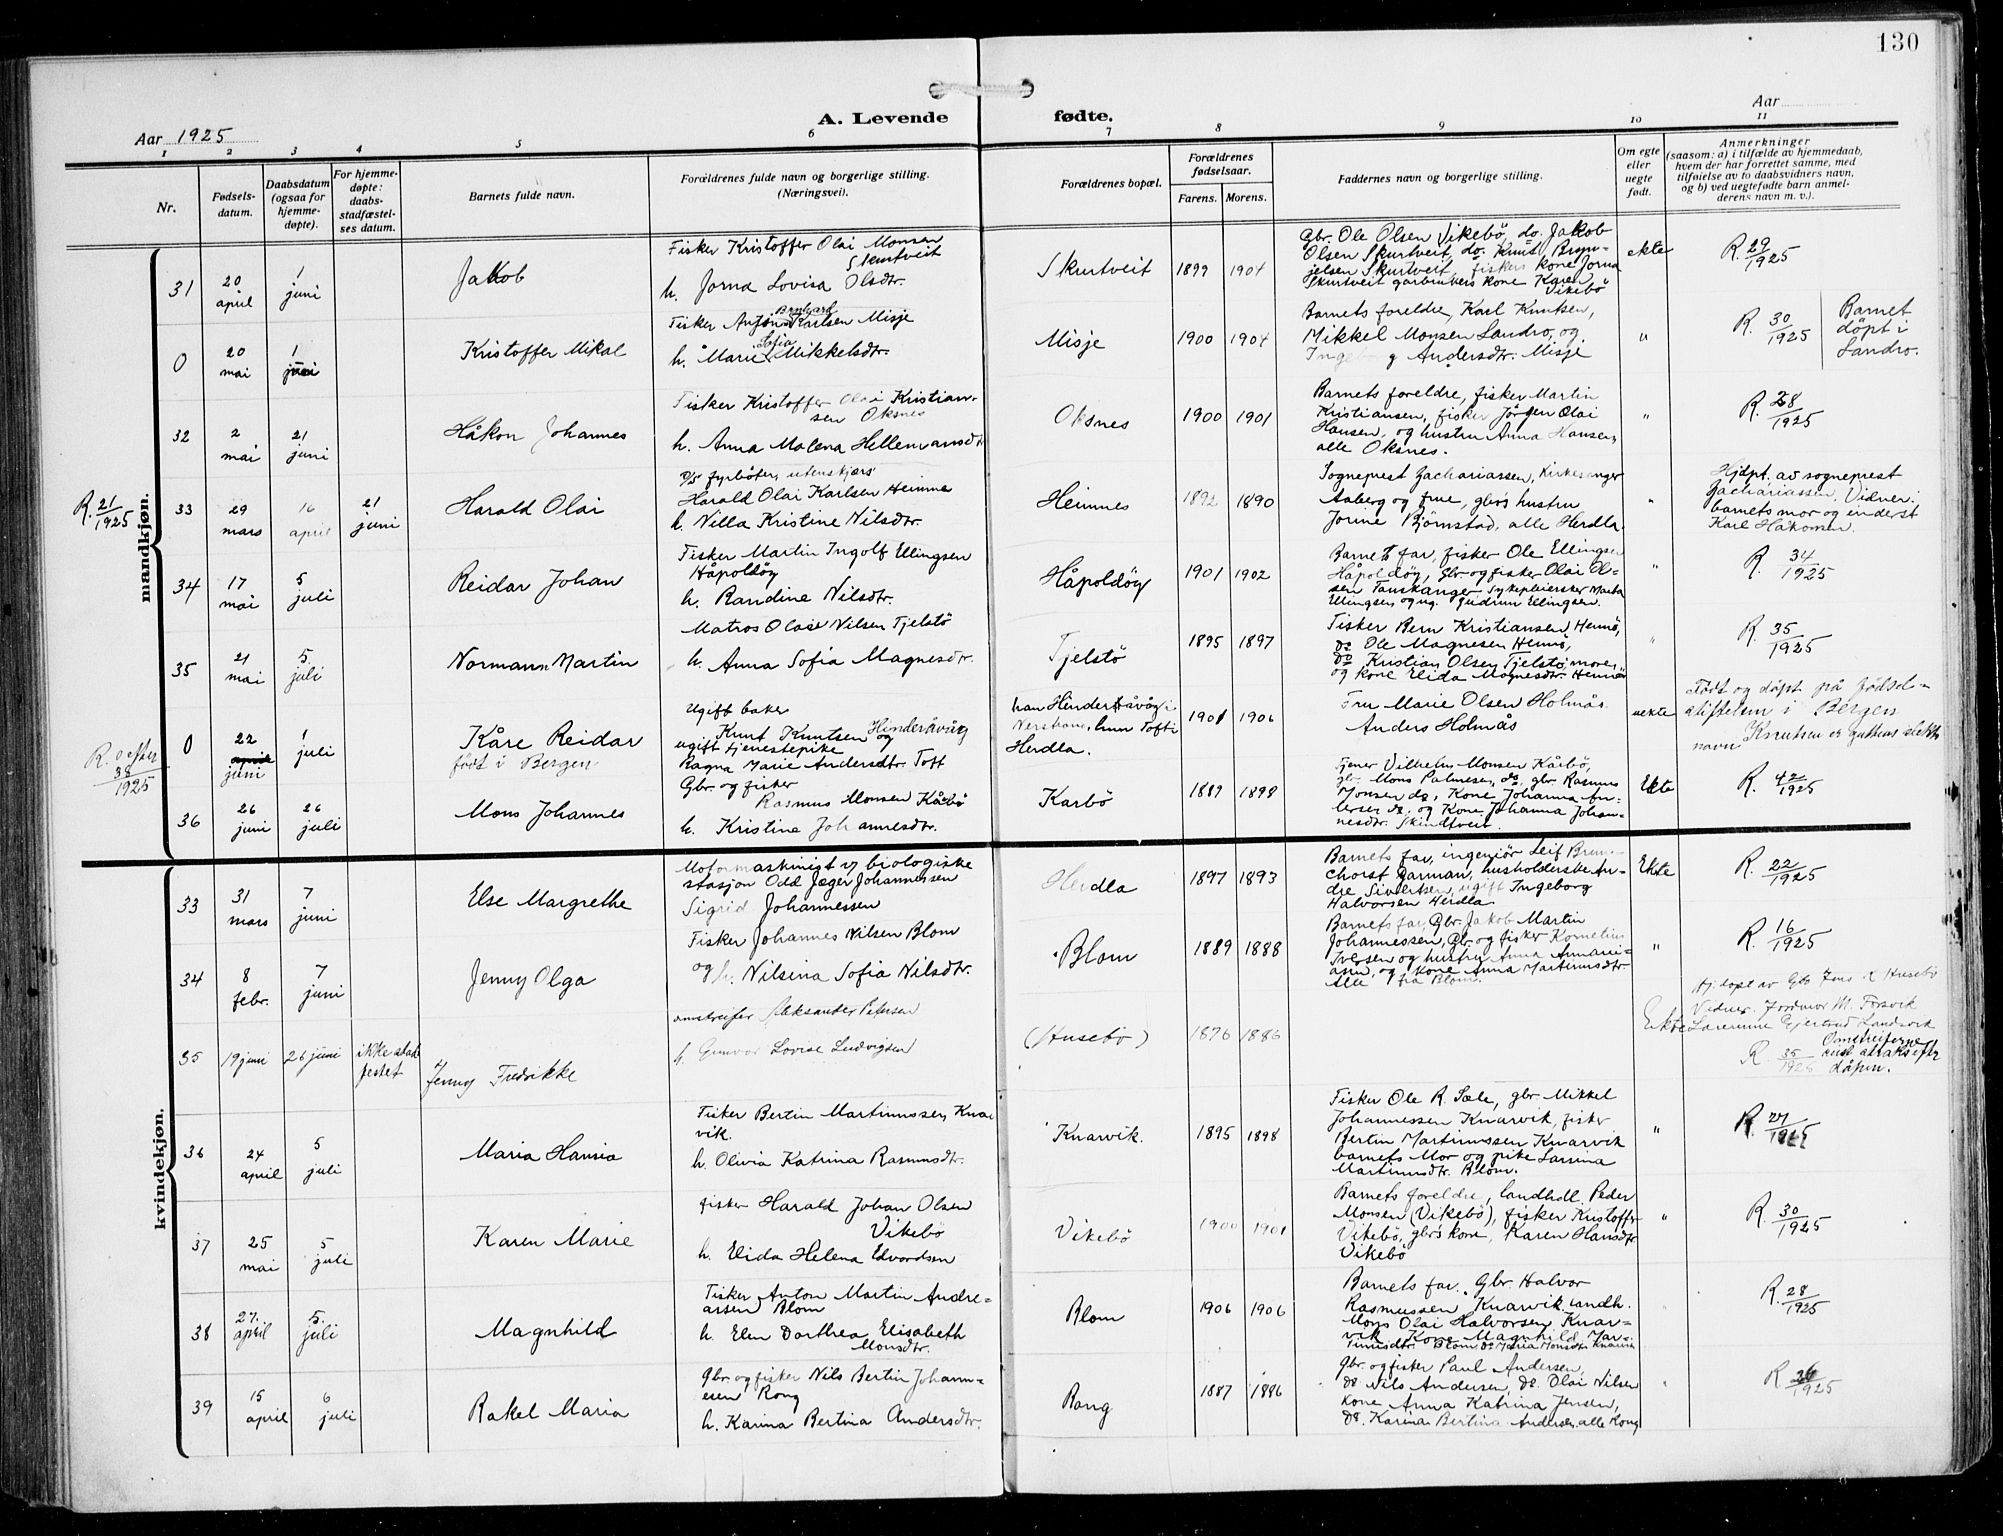 130
A. Levende fødte.
Aar 1925
Aar
1 2 3 4 5 6 7 8 9 10 11
Nr.
Fødsels-
datum.
Daabsdatum
(ogsaa for
hjemme-
døpte).
For hjemme-
døpte:
daabs-
stadfæstel-
ses datum.
Barnets fulde navn.
Forældrenes fulde navn og borgerlige stilling.
(Næringsvei).
Forældrenes bopæl.
Forældrenes
fødselsaar.
Farens. Morens.
Faddernes navn og borgerlige stilling.
Om egte
eller
uegte
født.
Anmerkninger
(saasom: a) i tilfælde av hjemmedaab,
hvem der har forrettet samme, med
tilføielse av to daabsvidners navn,
og b) ved uegtefødte barn anmel-
derens navn m. v.).
mandkjøn.
31
20
april
1
juni
Jakob
Fisker Kristoffer Olai Monsen
Skurtveit
h. Jorna Lovisa Olsdtr.
Skurtveit
1899 1904
Gbr. Ole Olsen Vikebö, do. Jakob
Olsen Skurtveit, do. Knut Bryn-
jelsen Skurtveit, fiskers kone Jorna
Skurtveit garbrukers kone Karen
Vikebö
ekte
R. 29/1925
0
20
mai
1
juni
Kristoffer Mikal
Bernhard
Fisker Anton Karlsen Misje
Sofia
h. Marie Mikkelsdtr.
Misje
1900 1904
Barnets foreldre, Karl Knutsen,
Mikkel Monsen Landro, og
Ingeborg Andersdtr. Misje
"
R. 30/1925
Barnet
döpt i
Landro.
32
2
mai
21
juni
Håkon Johannes
Fisker Kristoffer Olai Kristian-
sen Oksnes
h. Anna Malena Hellemansdtr
Oksnes
1900 1901
Barnets foreldre, fisker Martin
Kristiansen, fisker Jörgen Olai
Hansen, og hustru Anna Hansen,
alle Oksnes.
"
R. 28/1925
R. 21/1925
33
29
mars
16
april
21
juni
Harald Olai
fyrböter, utenskjærs
Harald Olai Karlsen Heimnes
h. Nilla Kristine Nilsdtr.
Heimnes
1892 1890
Sogneprest Zachariassen, Kirkesanger
Aaberg og frue, gbrs hustru
Jorine Björnstad, alle Herdla.
"
Hjdpt. av sogneprest
Zachariassen. Vidner:
barnets mor og inderst
Karl Håkonsen.
34
17
mai
5
juli
Reidar Johan
Fisker Martin Ingolf Ellingsen
Håpoldöy
h. Randine Nilsdtr.
Håpoldöy
1901 1902
Barnets far, fisker Ole Ellingsen
Håpoldöy, Gbr og fisker Olai Ol-
sen Tauskanger Sykepleierske Marta
Ellingsen og ug. Gudrun Ellingsen.
"
R. 34/1925
35
21
mai
5
juli
Normann Martin
Matros Olai Nilsen Tjelstö
h. Anna Sofia Magnesdtr.
Tjelstö
1895 1897
Fisker Bern Kristiansen Hennö,
do Ole Magnesen Hennö,
do Kristian Olsen Tjelstö, moren
og kone Elida Magnesdtr. Hennö
"
R. 35/1925
R. 0 efter
38/1925
0
22
juni
1
juli
Kåre Reidar
födt i Bergen
Ugift baker
Knut Knutsen Hinderåvåg
og
ugift tjenestepike
Ragna Marie Andersdtr. Toft
han Hinderåvåg i
Nerstrand, hun Toft i
Herdla.
1901 1906
Fru Marie Olsen Holmås
Anders Holmås
uekte
Födt og döpt på födsel-
stiftelsen i Bergen
Knutsen er guttens slekts
navn
36
26
juni
26
juli
Mons Johannes
Gbr. og fisker
Rasmus Monsen Kårbö
h. Kristine Johannesdtr.
Karbö
1889 1898
Tjener Vilhelm Monsen Kårbö,
gbr. Mons Palmesen, do, gbr Rasmus
Monsen do, Kone Johanna An-
dersen do. og Kone Johanna Johan-
nesdtr. Skindtveit.
Ekte
R. 42/1925
kvindekjøn.
33
31
mars
7
juni
Else Margrethe
Motormaskinist v/ biologiske
stasjon Odd Jæger Johannessen
Sigrid Johannessen
Herdla
1897 1893
Barnets far, ingeniör Leif Brun-
chorst Garman, husholderske An-
dre Sivertsen, ugift Ingeborg
Halvorsen Herdla
Ekte
R. 22/1925
34
8
febr.
7
juni
Jenny Olga
Fisker Johannes Nilsen Blom
og h. Nilsina Sofia Nilsdtr.
Blom
1889 1888
Barnets far, Gbr. Jakob Martin
Johannessen, Gbr. og fisker Kornelius
Iversen og hustru Anna Annari-
asen, og kone Anna Martinusdtr.
alle fra Blom.
"
R. 16/1925
35
19 juni
26 juni
ikke stad
festet
Jenny Fredrikke
omstreifer Aleksander Petersen
h. Gunvor Lovise Ludvigsen
(Husebö)
1876 1886
Ekte
Hj. döpt av Gbr Jens R Husebö
Vidner: Jordmor M. Forsvik
Lorentine Gjertrud Landsvik
Omstreiferne
reist straks efter
dåpen.
R. 35/1925
36
24
april
5
juli
Maria Hansia
Fisker Bertin Martinussen Knar
vik.
h. Olivia Katrina Rasmusdtr.
Knarvik.
1895 1898
Fisker Ole R. Sæle, gbr Mikkel
Johannessen Knarvik, fisker
Bertin Martinussen Knarvik
barnets Mor og pike Larsina
Martinusdtr. Blom.
"
R. 27/1925
37
25
mai
5
juli
Karen Marie
fisker Harald Johan Olsen
Vikebö
h. Elida Helena Edvardsen
Vikebö
1900 1901
Barnets foreldre, landhdl. Peder
Monsen (Vikebö), fisker Kristoffer
Vikebö, gbrs kone, Karen Hansdtr
Vikebö
"
R. 30/1925
38
27.
april
5.
juli
Magnhild
Fisker Anton Martin Andre-
assen Blom
h. Elen Dorthea Elisabeth
Monsdtr.
Blom
1906 1906
Barnets far. Gbr Halvor
Rasmussen Knarvik, landh.
Mons Olai Halvorsen Knar-
vik. Kone Magnhild Mar-
tinusdtr. Blom do Maria Monsdtr Knarvik
R. 28/1925
39
15
april
6
juli
Rakel Maria
Gbr. og fisker Nils Bertin Johann-
esen Rong
h. Karina Bertina Andersdtr.
Rong
1887 1886
Gbr. og fisker Paul Andersen,
do Nils Andersen, do. Olai Nilsen
Kone Anna Katrina Jensen,
do. Karina Bertina Andersen, alle Rong
"
R 26/1925